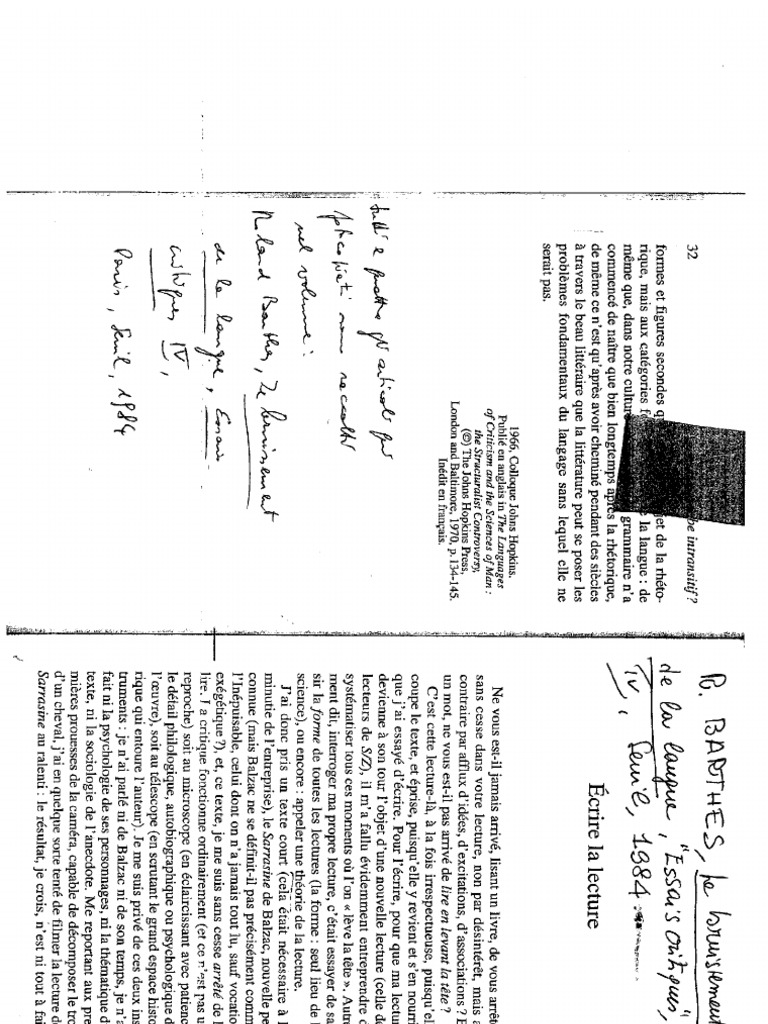 32
be intransitif ?
formes et figures secondes
jet de la rhéto-
rique, mais aux catégories
la langue : de
même que, dans notre cultur
grammaire n'a
commencé de naître que bien longtemps après la rhétorique,
de même ce n'est qu'après avoir cheminé pendant des siècles
à travers le beau littéraire que la littérature peut se poser les
problèmes fondamentaux du langage sans lequel elle ne
serait pas.
1966, Colloque Johns Hopkins.
Publié en anglais in The Languages
of Criticism and the Sciences of Man :
the Structuralist Controversy,
(©) The Johns Hopkins Press,
London and Baltimore, 1970, p. 134-145.
Inédit en français.
tutti e quattro gli articoli qui
sono raccolti
nel volume :
Roland Barthes, Le bruissement
de la langue, Essais
critiques IV,
Paris, Seuil, 1984
R. BARTHES, Le bruissement
de la langue, "Essais critiques,
IV, Seuil, 1984
Écrire la lecture
Ne vous est-il jamais arrivé, lisant un livre, de vous arrête
sans cesse dans votre lecture, non par désintérêt, mais a
contraire par afflux d'idées, d'excitations, d'associations ? E
un mot, ne vous est-il pas arrivé de lire en levant la tête ?
C'est cette lecture-là, à la fois irrespectueuse, puisqu'el
coupe le texte, et éprise, puisqu'elle y revient et s'en nourri
que j'ai essayé d'écrire. Pour l'écrire, pour que ma lectu
devienne à son tour l'objet d'une nouvelle lecture (celle de
lecteurs de S/Z), il m'a fallu évidemment entreprendre d
systématiser tous ces moments où l'on « lève la tête ». Autre
ment dit, interroger ma propre lecture, c'était essayer de sa
sir la forme de toutes les lectures (la forme : seul lieu de l
science), ou encore : appeler une théorie de la lecture.
J'ai donc pris un texte court (cela était nécessaire à l
minutie de l'entreprise), le Sarrasine de Balzac, nouvelle pe
connue (mais Balzac ne se définit-il pas précisément comm
l'Inépuisable, celui dont on n'a jamais tout lu, sauf vocatio
exégétique ?), et, ce texte, je me suis sans cesse arrêté de l
lire. La critique fonctionne ordinairement (et ce n'est pas u
reproche) soit au microscope (en éclaircissant avec patienc
le détail philologique, autobiographique ou psychologique d
l'œuvre), soit au télescope (en scrutant le grand espace histo
rique qui entoure l'auteur). Je me suis privé de ces deux ins
truments : je n'ai parlé ni de Balzac ni de son temps, je n'a
fait ni la psychologie de ses personnages, ni la thématique d
texte, ni la sociologie de l'anecdote. Me reportant aux pre
mières prouesses de la caméra, capable de décomposer le tro
d'un cheval, j'ai en quelque sorte tenté de filmer la lecture de
Sarrasine au ralenti : le résultat, je crois, n'est ni tout à fai